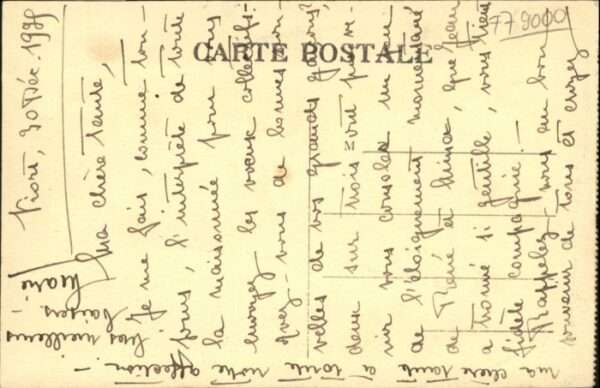 CARTE POSTALE
779000
Niort, 30 Déc. 1939
Ma chère Tante,
Je me fais, comme tou-
jours, l'interprète de toute
la maisonnée pour vous
envoyer les vœux collectifs.
Avez-vous de bonnes nou-
velles de vos grands garçons?
deux sur trois sont pour ve-
nir vous consoler un peu
de l'éloignement momentané
de René et Mimie, que Jean
a trouvé si gentille, vous tient
fidèle compagnie. -
Rappelez-nous au bon
souvenir de tous et croyez
ma chère tante à toute notre affection. -
Nos meilleurs
baisers -